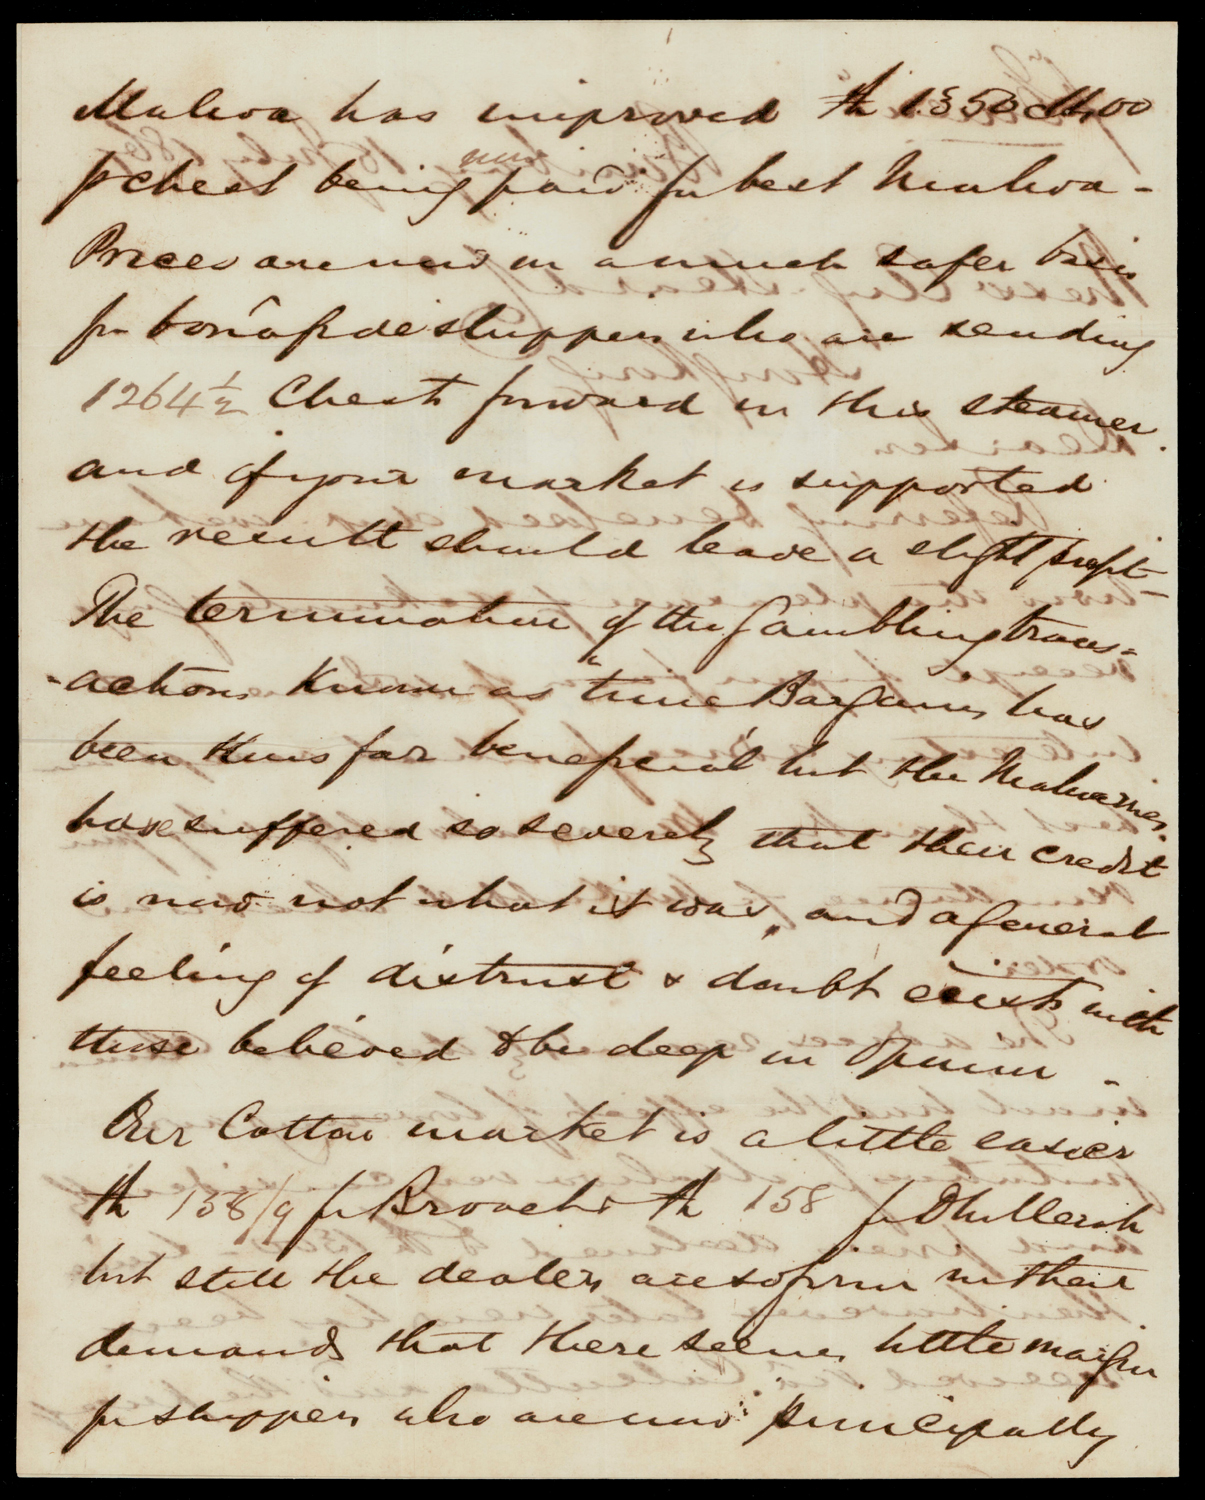 Malwa has improved Rs 1350 @ 1400
p chest being now paid for best Malwa -
Prices are now on a much safer basis
for bonâfide shippers who are sending
1264½ Chests forward in this steamer.
and if your market is supported
the result should leave a slight profit -
The termination of the Gambling trans-
-actions known as "time Bargains" has
been thus far beneficial but the Malwarries
have suffered so severely that their credit
is now not what it was, and a general
feeling of distrust & doubt exists with
those believed to be deep in Opium -
Our Cotton market is a little easier
Rs 158/9 for Broach & Rs 158 for Dhollerah
but still the dealers are so firm in their
demands that there seems little margin
for shippers who are now principally